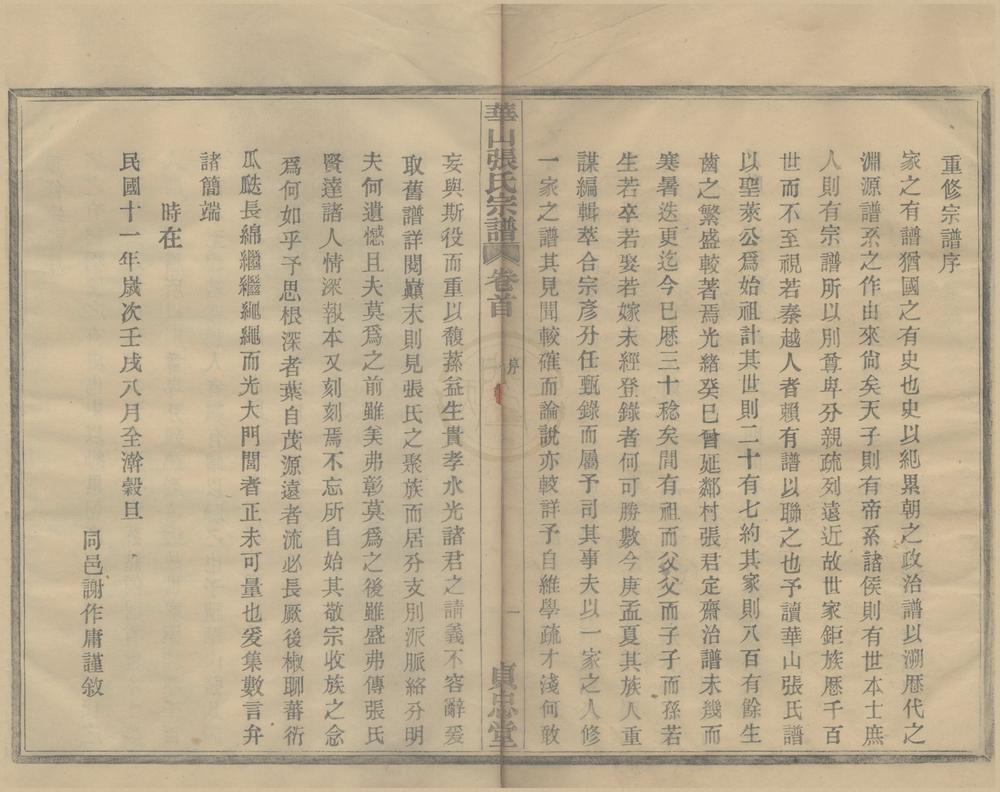 重修宗譜序
家之有譜猶國之有史也史以紀累朝之政治譜以溯歷代之
淵源譜系之作由來尙矣天子則有帝系諸侯則有世本士庶
人則有宗譜所以別尊卑分親疏列遠近故世家鉅族歷千百
世而不至視若秦越人者賴有譜以聯之也予讀華山張氏譜
以聖萊公爲始祖計其世則二十有七約其家則八百有餘生
齒之繁盛較著焉光緒癸巳曾延鄰村張君定齋治譜未幾而
寒暑迭更迄今已歷三十稔矣間有祖而父父而子子而孫若
生若卒若娶若嫁未經登錄者何可勝數今庚孟夏其族人重
謀編輯萃合宗彥分任甄錄而屬予司其事夫以一家之人修
一家之譜其見聞較確而論說亦較詳予自維學疏才淺何敢
華山張氏宗譜 卷首 序 一 貞忠堂
妄與斯役而重以馥蓀益生貴孝水光諸君之請義不容辭爰
取舊譜詳閱巔末則見張氏之聚族而居分支別派脈絡分明
夫何遺憾且夫莫爲之前雖美弗彰莫爲之後雖盛弗傳張氏
賢達諸人情深報本又刻刻焉不忘所自始其敬宗收族之念
爲何如乎予思根深者葉自茂源遠者流必長厥後椒聊蕃衍
瓜瓞長綿繼繼繩繩而光大門閭者正未可量也爰集數言弁
諸簡端
時在
民國十一年歲次壬戌八月全澣穀旦
同邑謝作庸謹敘